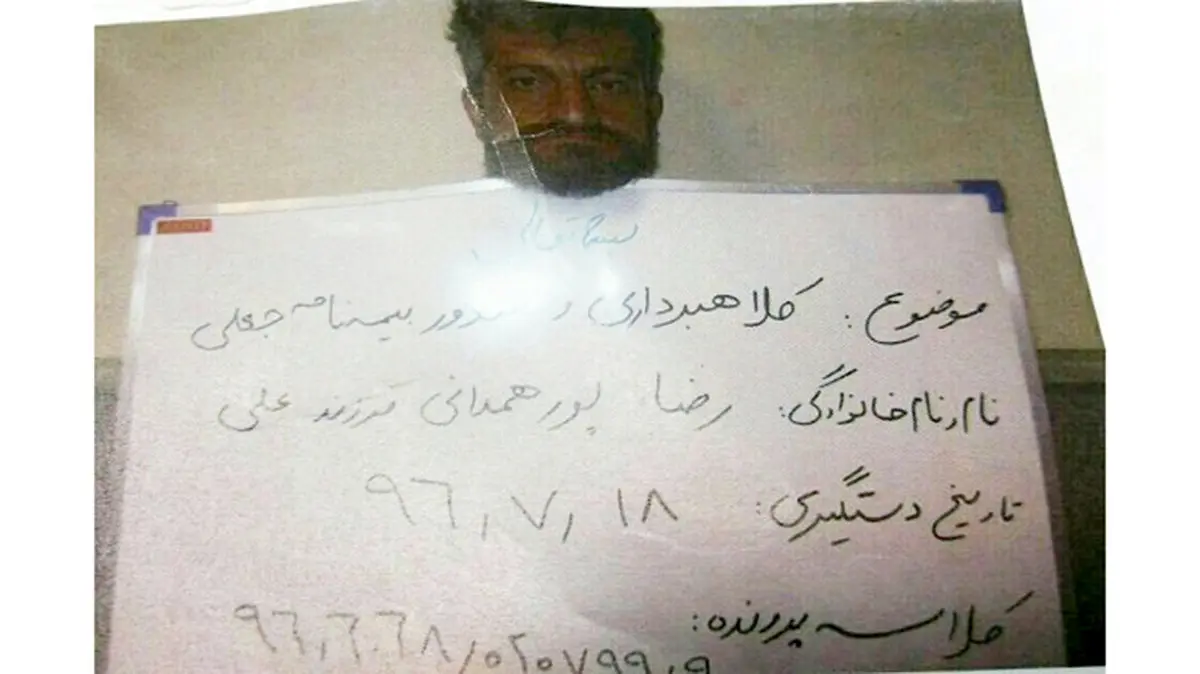 موضوع: کلاهبرداری و صدور بیمه‌نامه جعلی
نام و نام خانوادگی: رضا پور همدانی فرزند علی
تاریخ دستگیری: ۹۶/۷/۱۸
کلاسه پرونده: